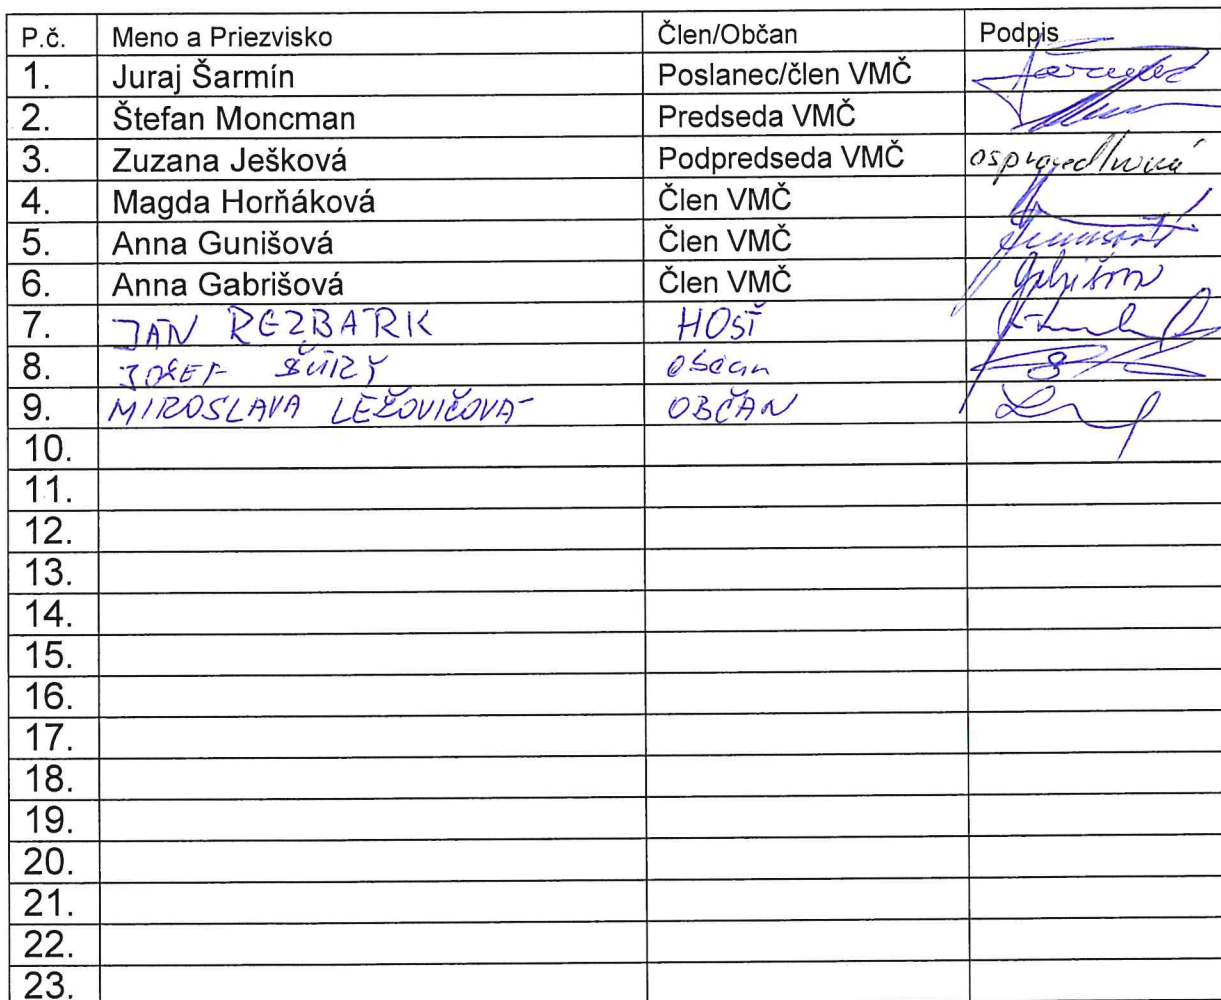 P.č. Meno a Priezvisko Člen/Občan Podpis
1. Juraj Šarmín Poslanec/člen VMČ
2. Štefan Moncman Predseda VMČ
3. Zuzana Ješková Podpredseda VMČ ospravedlnená
4. Magda Horňáková Člen VMČ
5. Anna Gunišová Člen VMČ
6. Anna Gabrišová Člen VMČ
7. JÁN REZBÁRIK HOSŤ
8. JOZEF ŠÚRZY občan
9. MIROSLAVA LEŽOVIČOVÁ OBČAN
10.
11.
12.
13.
14.
15.
16.
17.
18.
19.
20.
21.
22.
23.